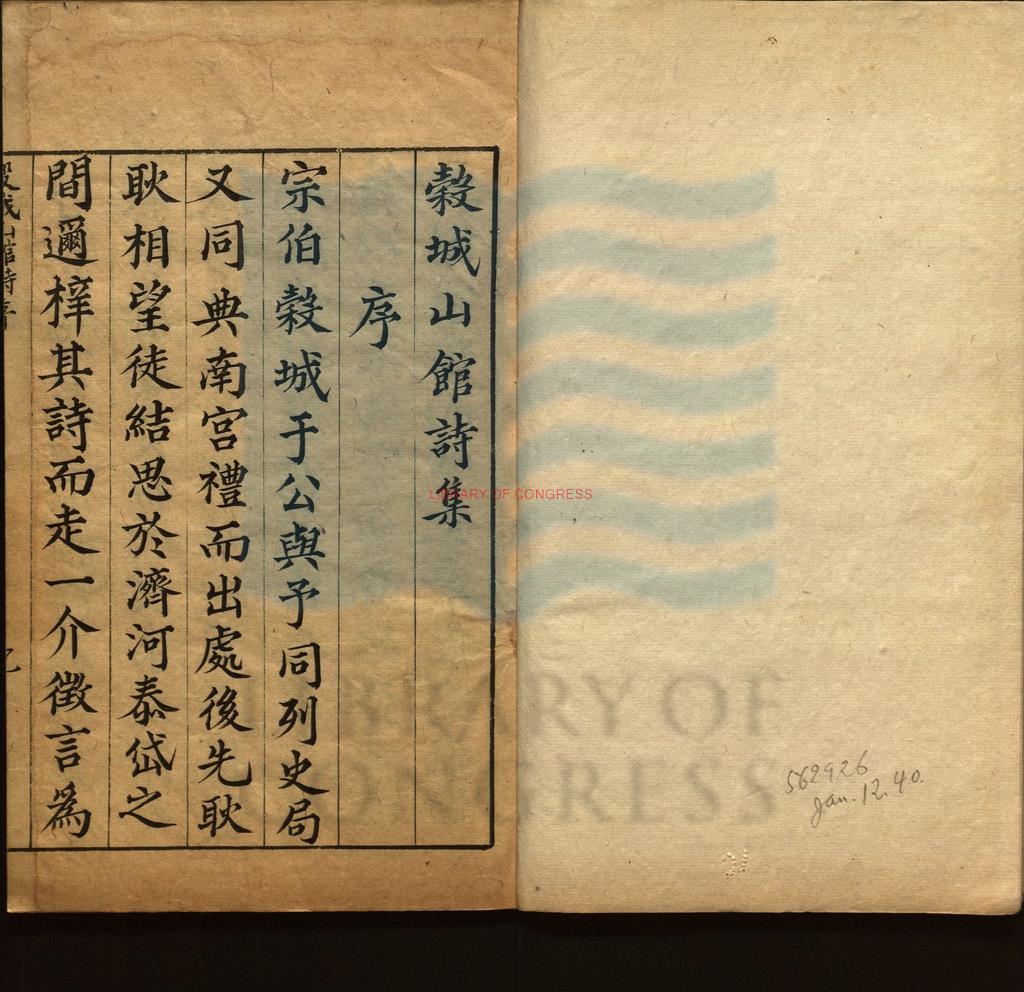 穀城山館詩集
序
宗伯穀城于公與予同列史局
又同典南宫禮而出處後先耿
耿相望徒結思於濟河泰岱之
間邇梓其詩而走一介徵言為
穀城山館詩序
LIBRARY OF CONGRESS
LIBRARY OF
CONGRESS
562926
Jan. 12. 40.